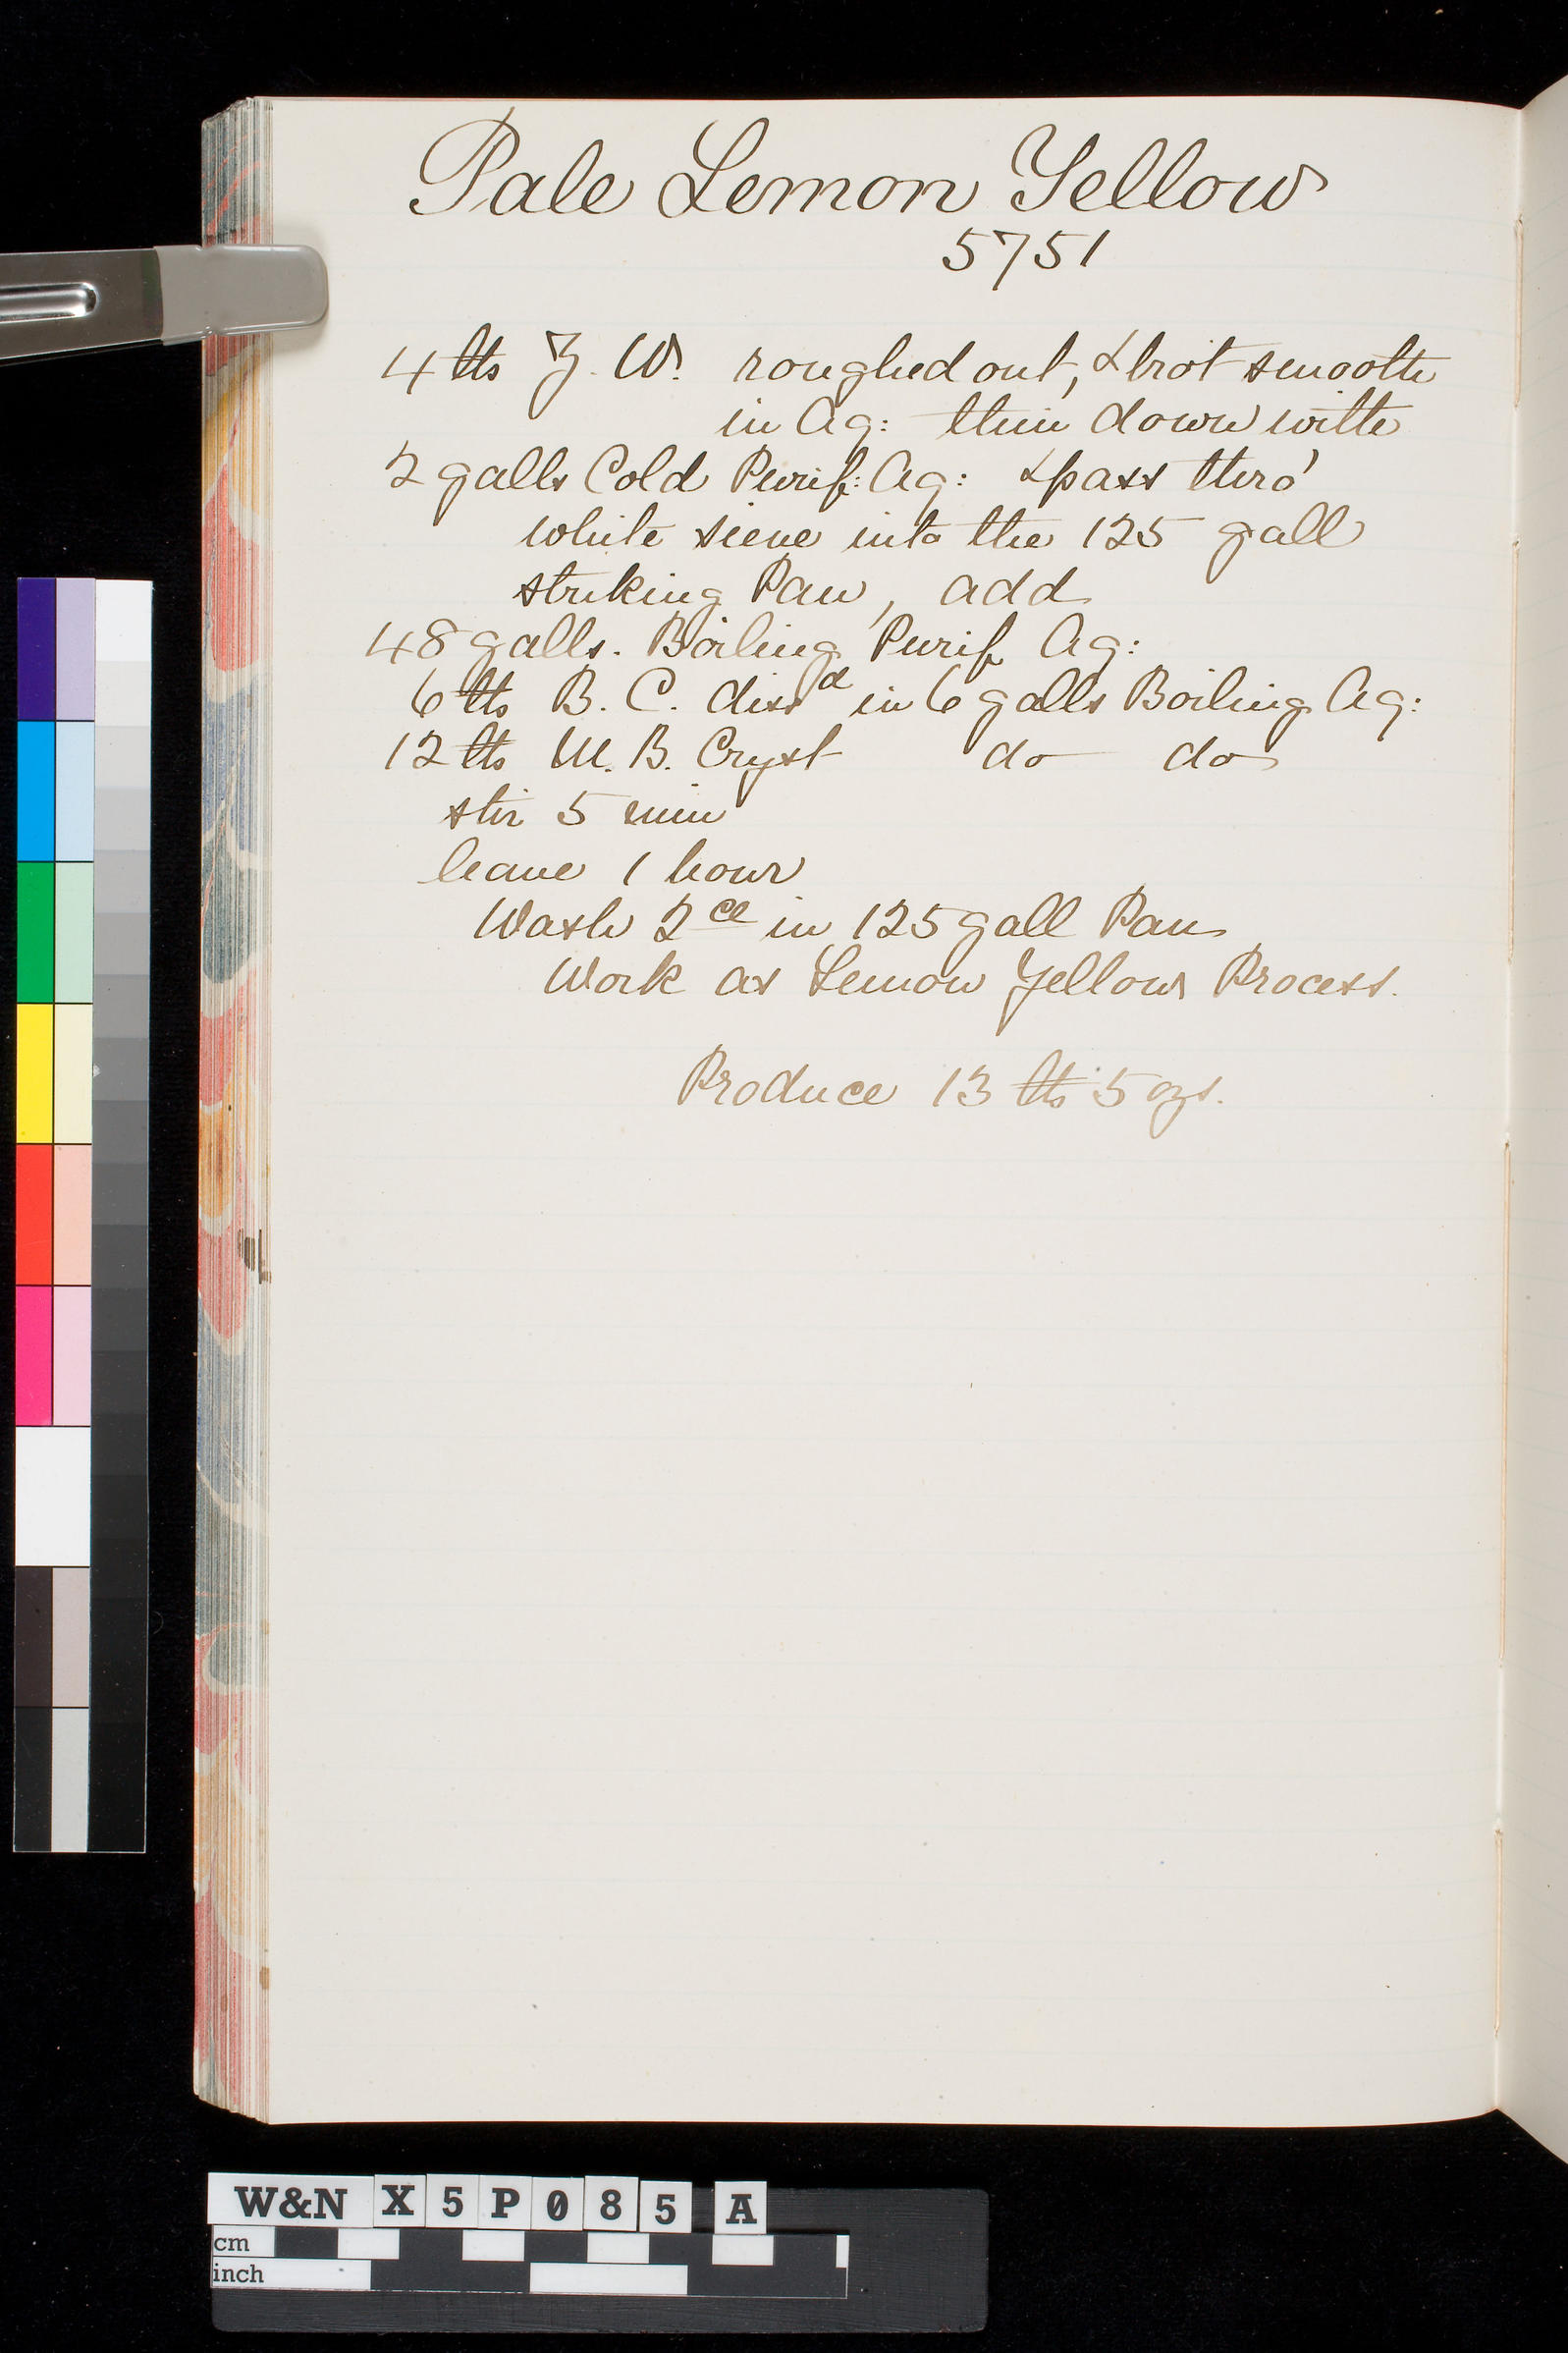 Pale Lemon Yellow
5751
4 lbs Z. W. roughed out, & bro't smooth
in Aq: thin down with
2 galls Cold Purif: Aq: & pass thro'
white sieve into the 125 gall
striking Pan, add
48 galls. Boiling Purif Aq:
6 lbs B. C. dissd in 6 galls Boiling Aq:
12 lbs M. B. Cryst do do
stir 5 min
leave 1 hour
Wash 2ce in 125 gall Pan
Work as Lemon Yellow Process.
Produce 13 lbs 5 ozs.
W&N X5P085 A
cm
inch